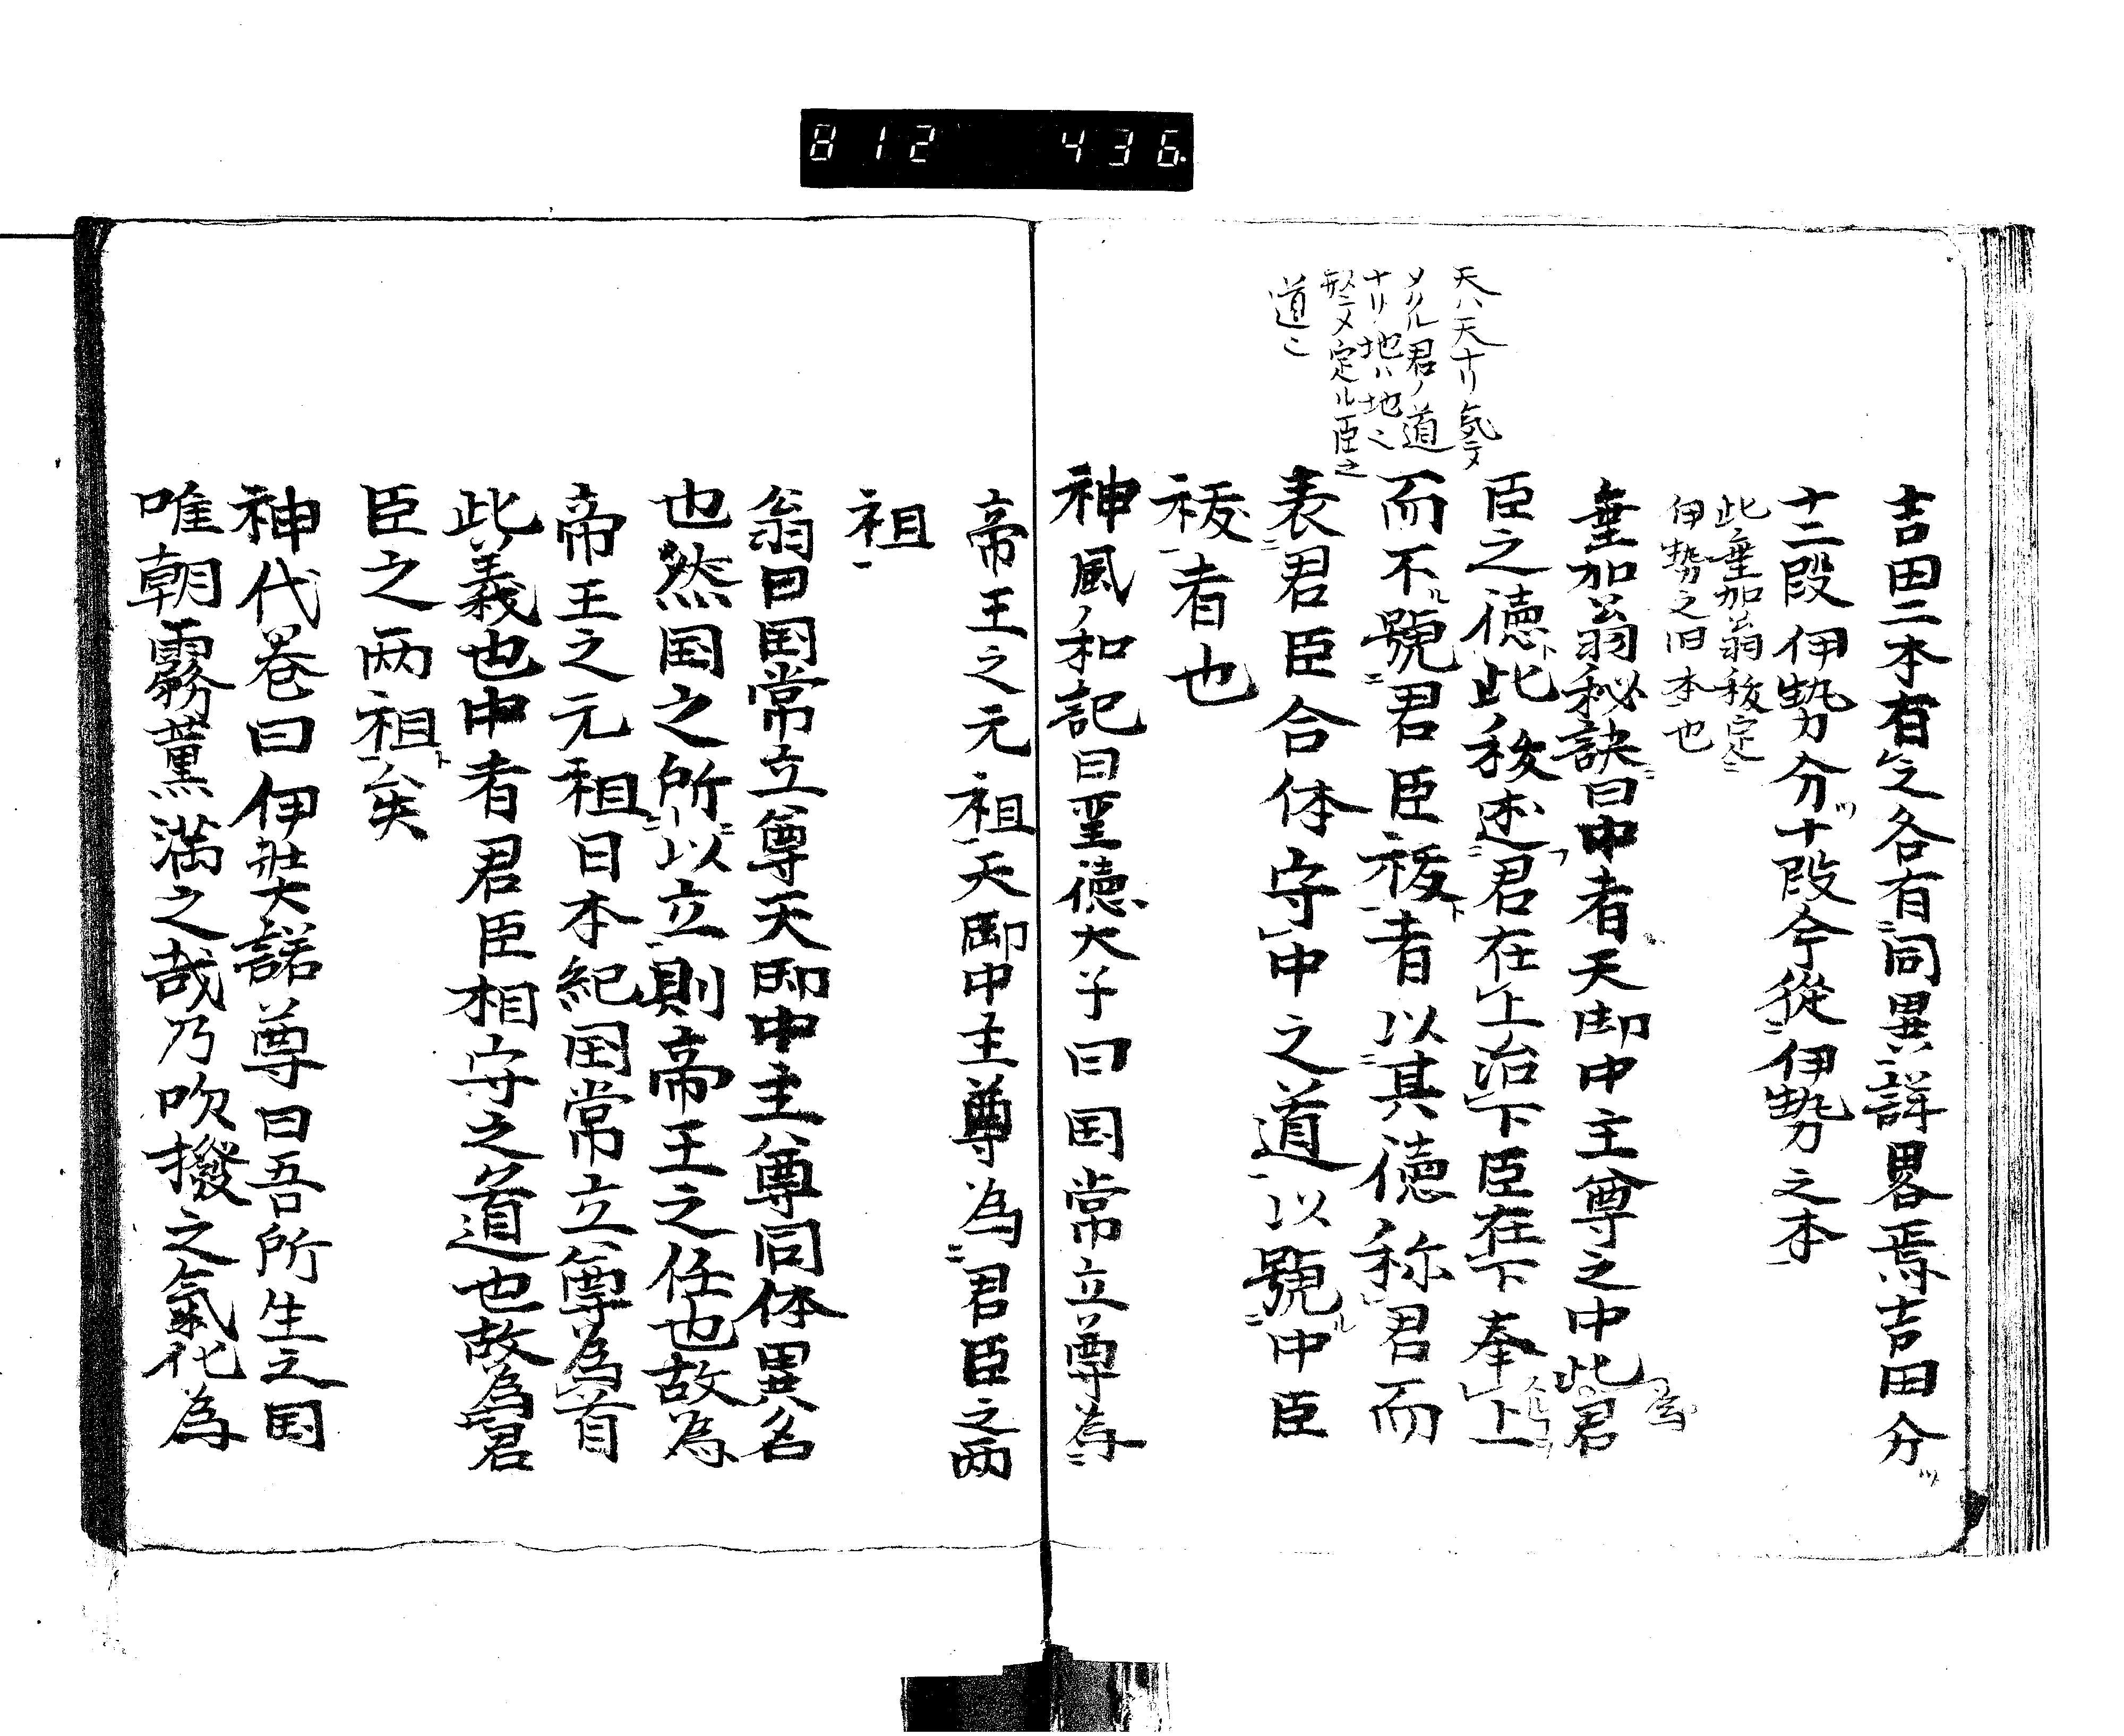 812 436.
吉田二本有之各有同異詳畧焉吉田分
十二段伊勢分十段今從伊勢之本
此垂加翁秡定
伊勢之旧本也
垂加翁秘訣曰中者天御中主尊之中此君
臣之徳此秡述君在上治下臣在下奉上
而不號君臣祓者以其徳称君而
表君臣合体守中之道以號中臣
祓者也
天ハ天ナリ気ニテ
メクル君ノ道
ナリ地ハ地ニ
定ル臣之
道ニ
神風ノ和記曰聖徳太子曰国常立尊為
帝王之元祖天御中主尊為君臣之両
祖
翁曰国常立尊天御中主尊同体異名
也然国之所以立則帝王之任也故為
帝王之元祖日本紀国常立尊為首
此義也中者君臣相守之道也故為君
臣之両祖矣
神代巻曰伊弉諾尊曰吾所生之国
唯朝霧薫満之哉乃吹撥之氣化為